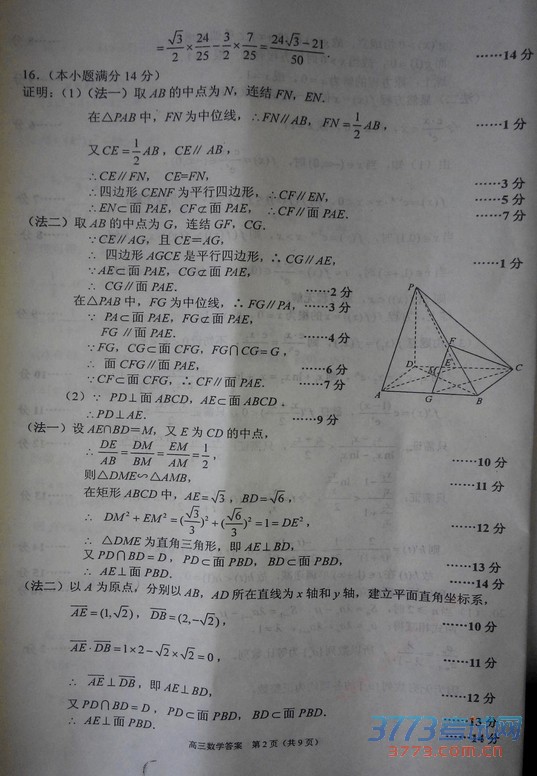 = √3/2 × 24/25 − 3/2 × 7/25 = (24√3−21)/50. ……14 分
16.（本小题满分 14 分）
证明：（1）（法一）取 AB 的中点为 N，连结 FN，EN.
在△PAB 中，FN 为中位线，∴FN∥AB，FN = 1/2 AB， ……1 分
又 CE = 1/2 AB，CE∥ AB，
∴CE∥FN， CE=FN， ……3 分
∴四边形 CENF 为平行四边形，∴CF∥EN， ……5 分
∴EN⊂面 PAE，CF⊄面 PAE， ∴CF∥面 PAE. ……7 分
（法二）取 AB 的中点为 G，连结 GF，CG.
∵CE∥AG，且 CE=AG，
∴ 四边形 AGCE 是平行四边形，∴ CG∥AE， ……1 分
∵AE⊂面 PAE，CG⊄面 PAE，
∴ CG∥面 PAE. ……2 分
在△PAB 中，FG 为中位线，∴ FG∥PA，……3 分
∵ PA⊂面 PAE，FG⊄面 PAE，
FG∥面 PAE. ……4 分
∵FG，CG⊂面 CFG，FG∩CG=G，
∴ 面 CFG∥面 PAE， ……6 分
∵CF⊂面 CFG，∴ CF∥面 PAE. ……7 分
P
F
D
M
E
C
A
G
B
（2）∵ PD⊥面 ABCD，AE⊂面 ABCD.
∴PD⊥AE. ……9 分
（法一）设 AE∩BD=M，又 E 为 CD 的中点，
∴ DE/AB = DM/BM = EM/AM = 1/2， ……10 分
则△DME∽△AMB，
在矩形 ABCD 中，AE=√3，BD=√6， ……11 分
∴ DM²+EM²=(√3/3)²+(√6/3)²=1=DE²， ……12 分
∴ △DME 为直角三角形，即 AE⊥BD，
又 PD∩BD=D，PD⊂面 PBD，BD⊂面 PBD， ……13 分
∴ AE⊥面 PBD. ……14 分
（法二）以 A 为原点，分别以 AB，AD 所在直线为 x 轴和 y 轴，建立平面直角坐标系，
AE=(1,√2)，DB=(2,−√2)， ……10 分
AE·DB=1×2−√2×√2=0， ……11 分
∴ AE⊥DB，即 AE⊥BD， ……12 分
又 PD∩BD=D，PD⊂面 PBD，BD⊂面 PBD. ……13 分
∴ AE⊥面 PBD. ……14 分
高三数学答案 第 2 页（共 9 页）
3773考试网
3773.com.cn